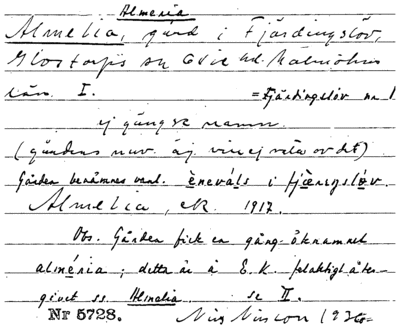 Almeria
Almelia, gård i Fjärdingslöv,
Glostorps sn Oxie hd. Malmöhus
län. I. = Fjärdingslöv nr 1
ej gängse namn
(gårdens nuv. äg vill ej veta av det)
Gården benämnes vanl. èneváls i fjæŋslǿv.
Almelia, ER 1917.
Obs. Gården fick en gång öknamnet
alméria; detta är å E.K. felaktigt åter-
givet ss. Almelia. se II.
Nr 5728. Nils Nilsson 1930